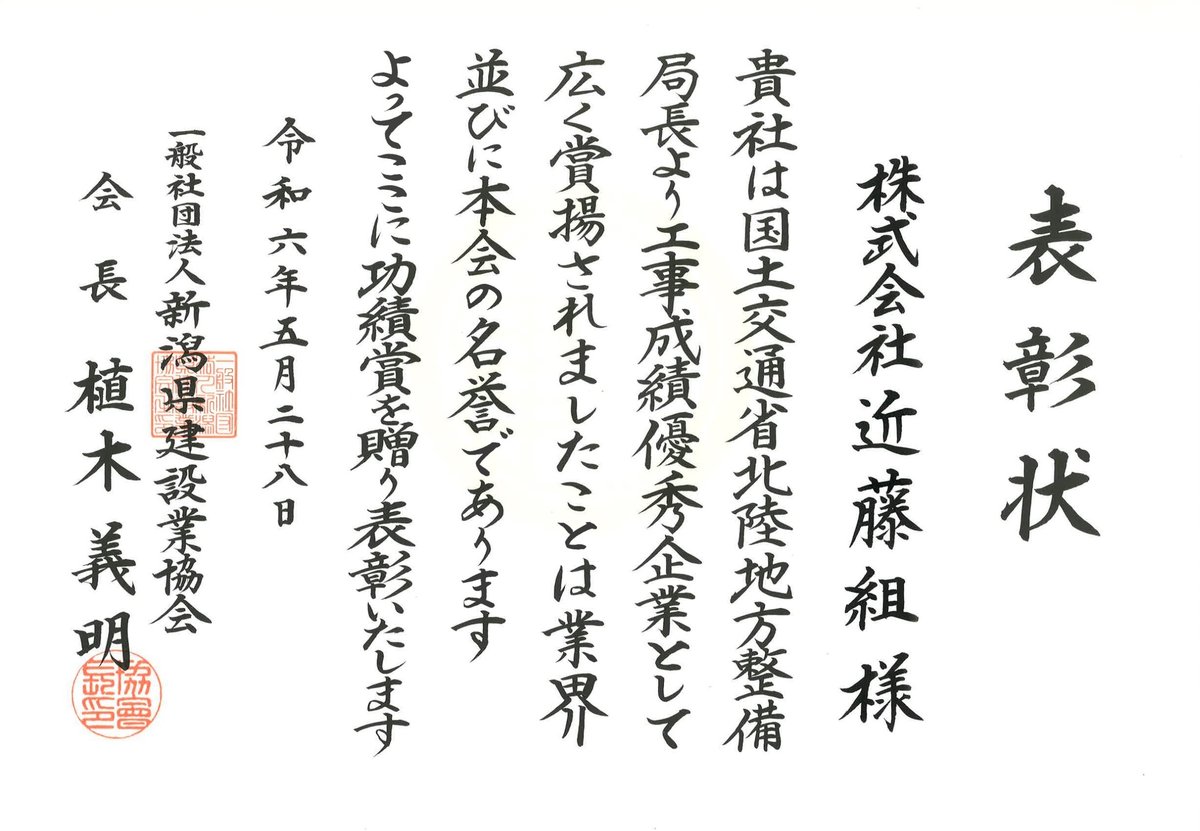 表彰状
株式会社近藤組様
貴社は国土交通省北陸地方整備
局長より工事成績優秀企業として
広く賞揚されましたことは業界
並びに本会の名誉であります
よってここに功績賞を贈り表彰いたします
令和六年五月二十八日
一般社団法人新潟県建設業協会
会長 植木義明
協會長印